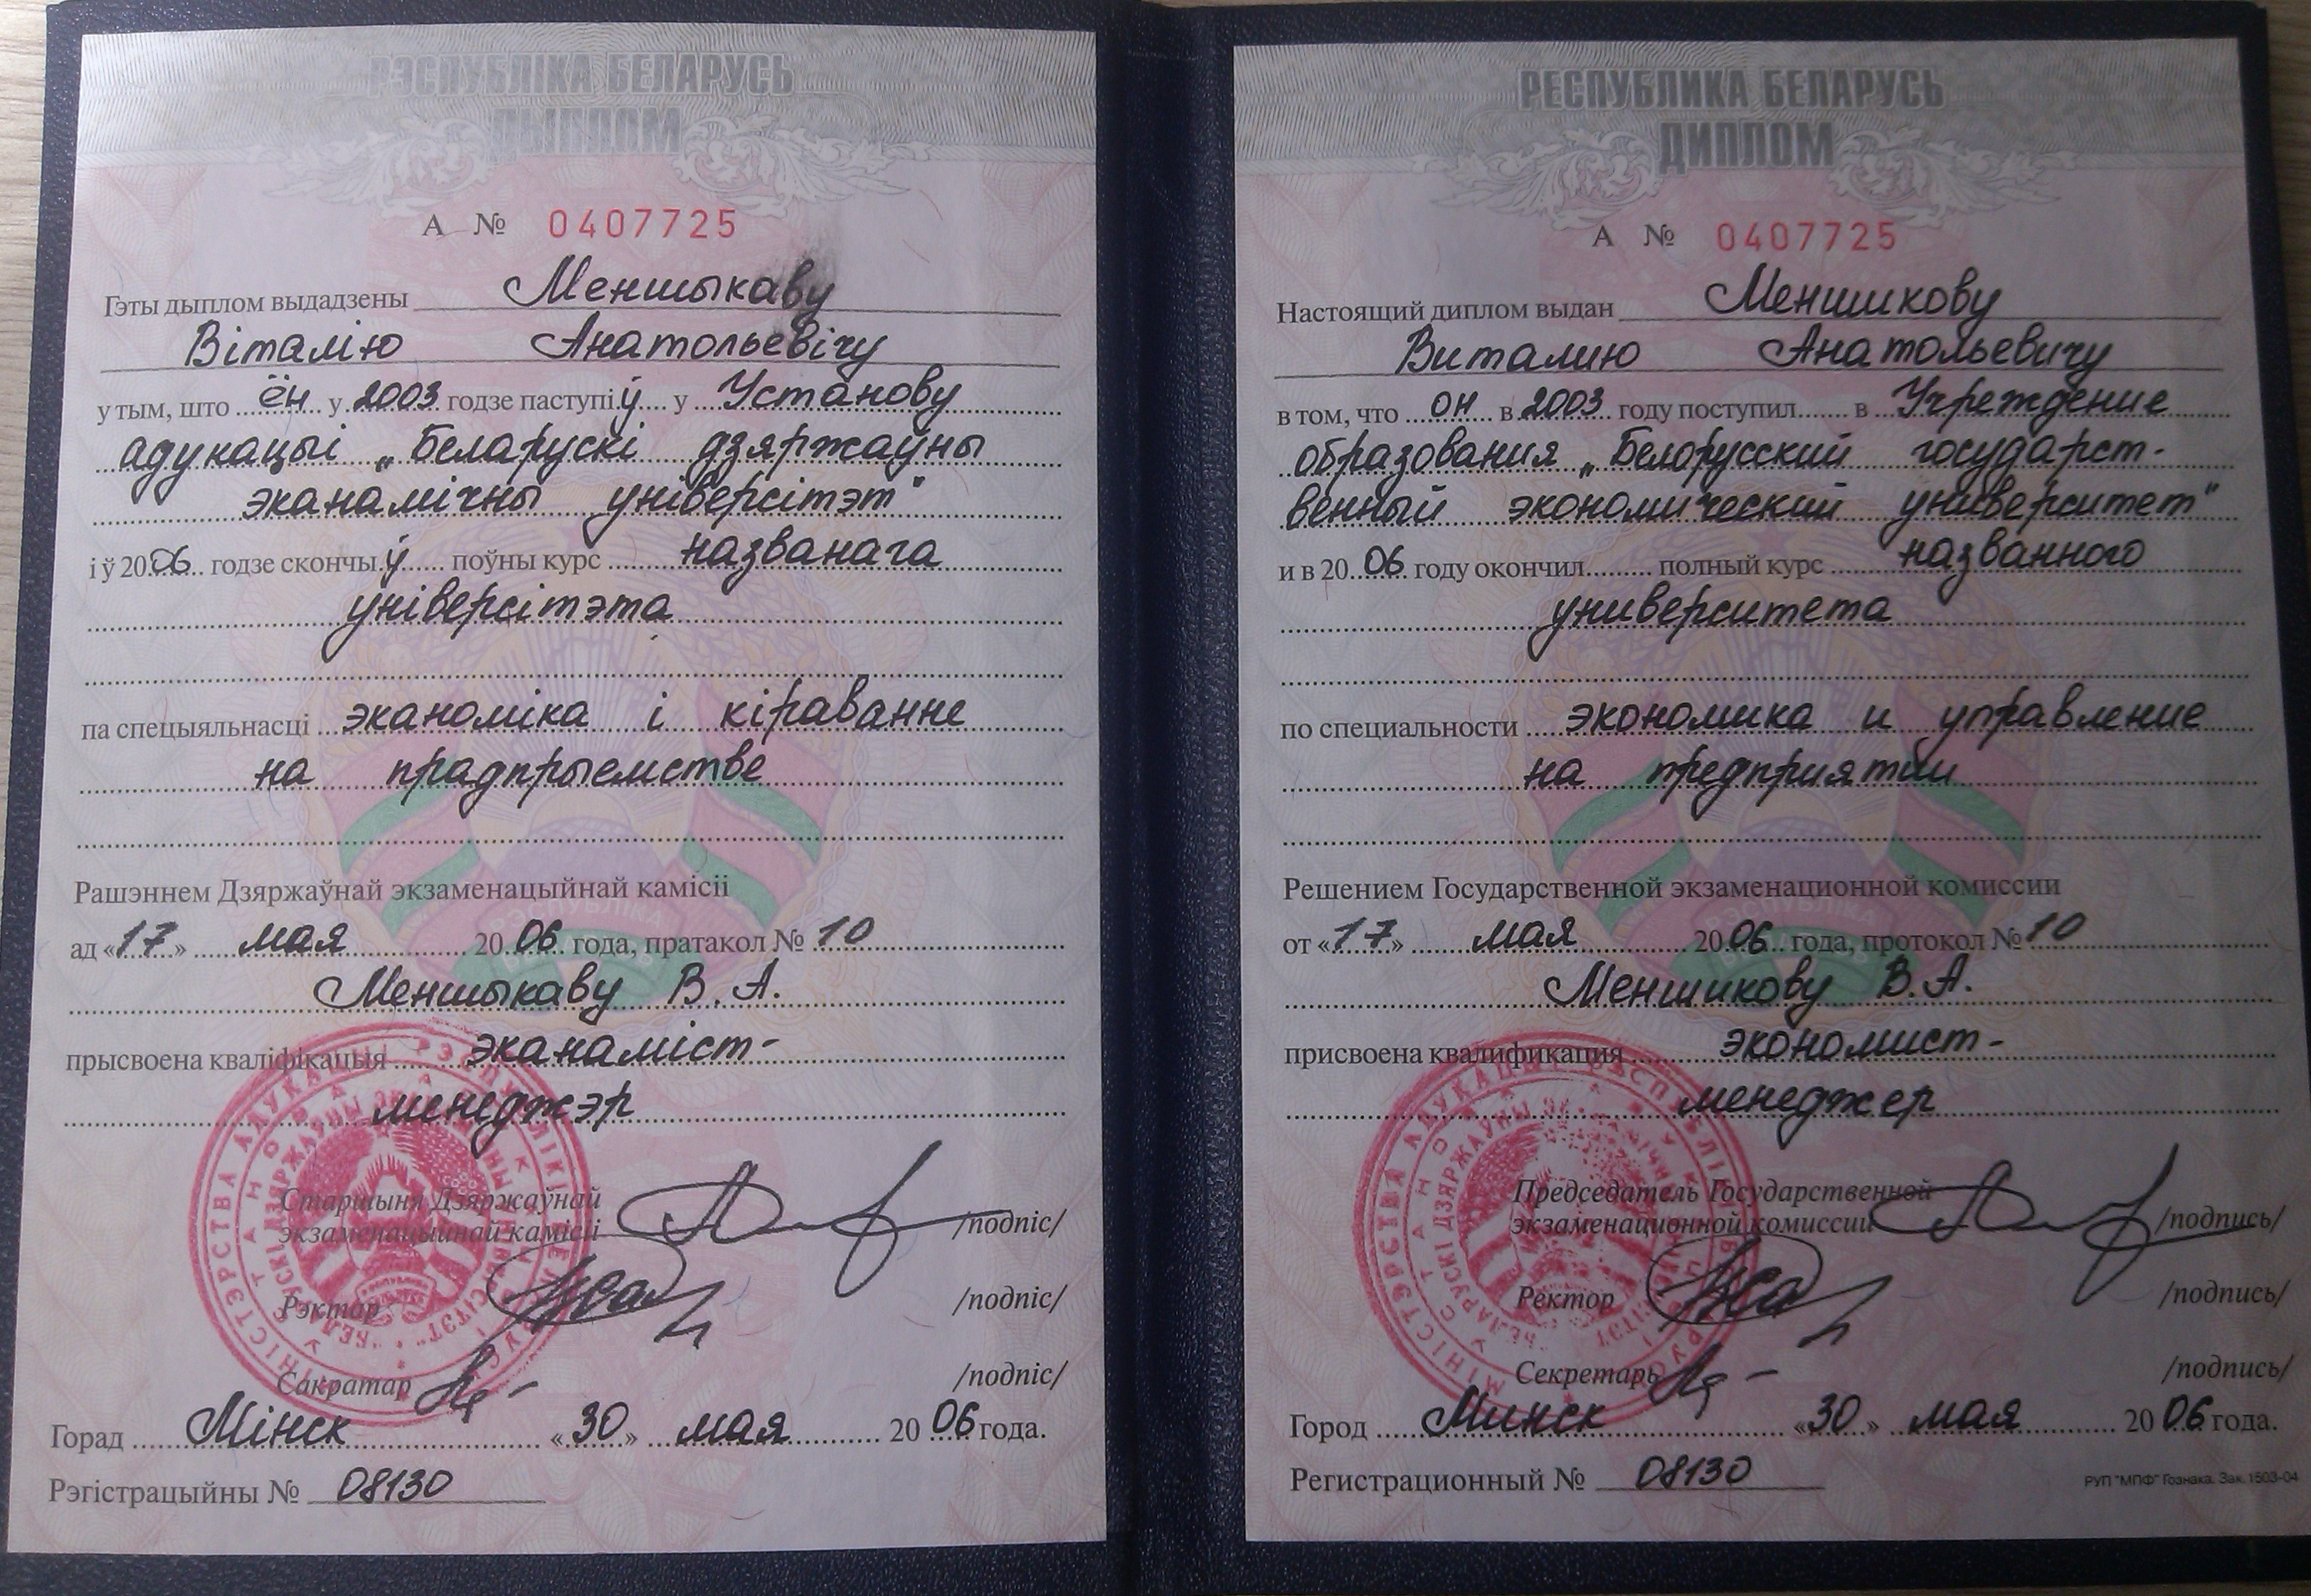 РЭСПУБЛІКА БЕЛАРУСЬ
ДЫПЛОМ
А № 0407725
Гэты дыплом выдадзены Меншыкаву
Віталію Анатольевічу
у тым, што ён у 2003 годзе паступіў у Установу
адукацыі „Беларускі дзяржаўны
эканамічны універсітэт"
і ў 2006 годзе скончыў поўны курс названага
універсітэта
па спецыяльнасці эканоміка і кіраванне
на прадпрыемстве
Рашэннем Дзяржаўнай экзаменацыйнай камісіі
ад «17» мая 2006 года, пратакол № 10
Меншыкаву В. А.
прысвоена кваліфікацыя эканаміст-
менеджэр
Старшыня Дзяржаўнай
экзаменацыйнай камісіі /подпіс/
Рэктар /подпіс/
Сакратар /подпіс/
Горад Мінск «30» мая 2006 года.
Рэгістрацыйны № 08130
РЕСПУБЛИКА БЕЛАРУСЬ
ДИПЛОМ
А № 0407725
Настоящий диплом выдан Меншикову
Виталию Анатольевичу
в том, что он в 2003 году поступил в Учреждение
образования „Белорусский государст-
венный экономический университет"
и в 2006 году окончил полный курс названного
университета
по специальности экономика и управление
на предприятии
Решением Государственной экзаменационной комиссии
от «17» мая 2006 года, протокол № 10
Меншикову В. А.
присвоена квалификация экономист-
менеджер
Председатель Государственной
экзаменационной комиссии /подпись/
Ректор /подпись/
Секретарь /подпись/
Город Минск «30» мая 2006 года.
Регистрационный № 08130
РУП "МПФ" Гознака. Зак. 1503-04